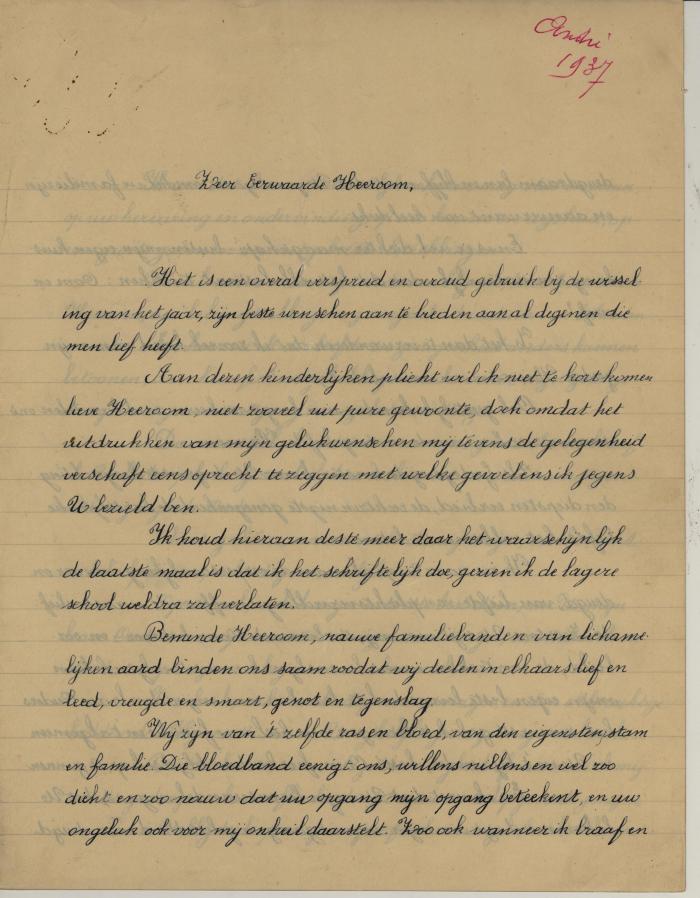 André
1937
Zeer Eerwaarde Heeroom,
Het is een overal verspreid en aroud gebruik bij de wissel
ing van het jaar, zijn beste wenschen aan te bieden aan al degenen die
men lief heeft.
Aan dezen kinderlijken plicht wil ik niet te kort komen
lieve Heeroom, niet zooveel uit pure gewoonte, doch omdat het
uitdrukken van mijn gelukwenschen mij tevens de gelegenheid
verschaft eens oprecht te zeggen met welke gevoelens ik jegens
U bezield ben.
Ik houd hieraan des te meer daar het waarschijnlijk
de laatste maal is dat ik het schriftelijk doe, gezien ik de lagere
school weldra zal verlaten.
Beminde Heeroom, nauwe familiebanden van lichame-
lijken aard binden ons saam zoodat wij deelen in elkaars lief en
leed, vreugde en smart, genot en tegenslag.
Wij zijn van 't zelfde ras en bloed, van den eigensten stam
en familie. Die bloedband eenigt ons, willens nillens en wel zoo
dicht en zoo nauw dat uw opgang mijn opgang beteekent, en uw
ongeluk ook voor mij onheil daarstelt. Zoo ook wanneer ik braaf en